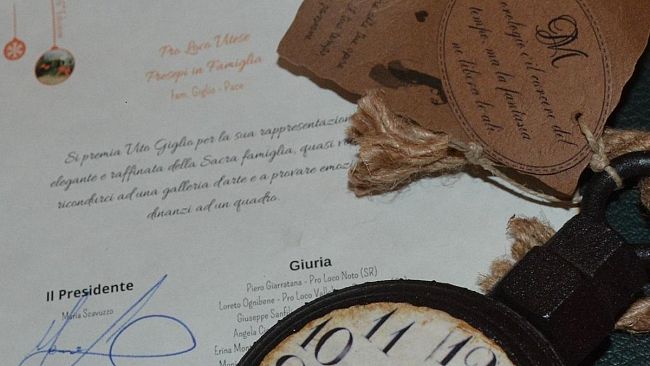 Pro Loco Vitese
Presepi in Famiglia
Fam. Giglio - Pace
Si premia Vito Giglio per la sua rappresentazion
elegante e raffinata della Sacra famiglia, quasi
ricondurci ad una galleria d'arte e a provare emozi
dinanzi ad un quadro.
Il Presidente
Maria Scavuzzo
Giuria
Piero Giarratana - Pro Loco Noto (SR)
Loreto Ognibene - Pro Loco Vall
Giuseppe Sanfil
Angela Ci
Erina Mon
DM
orologio è il carcere del
tempo, ma la fantasia
ne libera le ali.
10 11 12